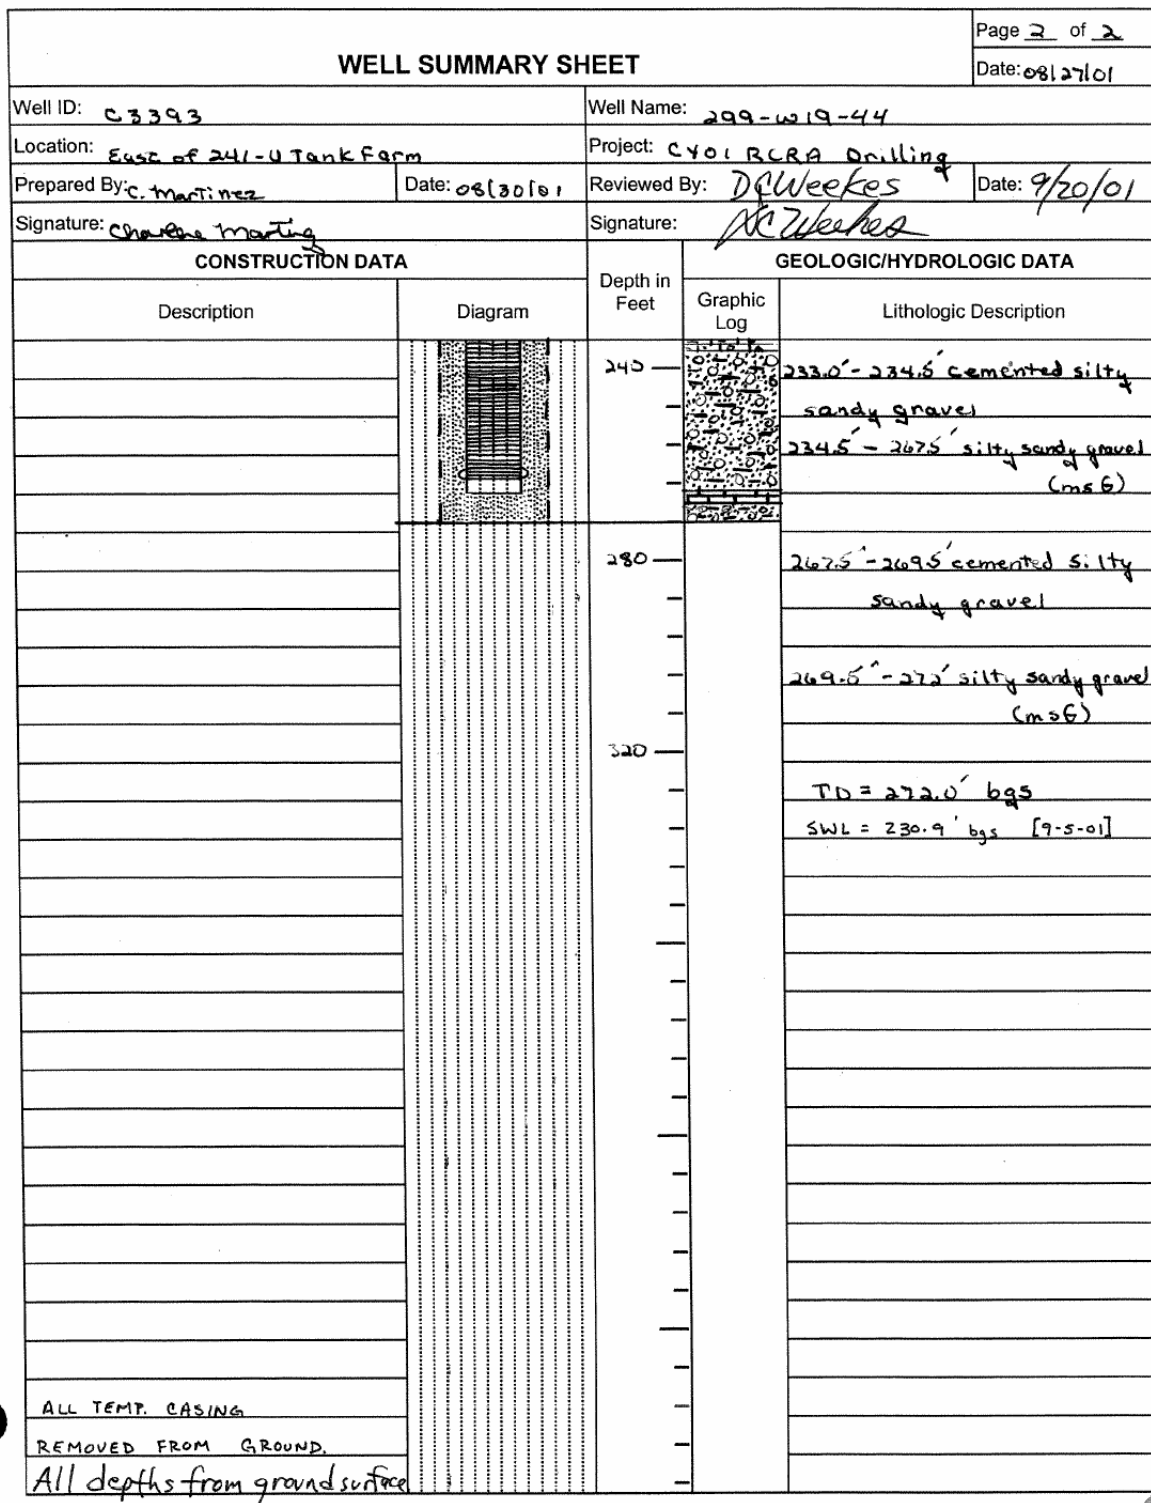 Page 2 of 2
WELL SUMMARY SHEET
Date: 08/27/01
Well ID: C3393
Well Name: 299-W19-44
Location: East of 241-U Tank Farm
Project: CY01 RCRA Drilling
Prepared By: C. Martinez
Date: 08/30/01
Reviewed By: DCWeekes
Date: 9/20/01
Signature: Charlene Martinez
Signature: DC Weekes
CONSTRUCTION DATA
Depth in
Feet
GEOLOGIC/HYDROLOGIC DATA
Description
Diagram
Graphic
Log
Lithologic Description
240
233.0' - 234.5' cemented silty
sandy gravel
234.5' - 267.5' silty sandy gravel
(msG)
280
267.5' - 269.5' cemented silty
sandy gravel
269.5' - 272' silty sandy gravel
(msG)
320
TD = 272.0' bgs
SWL = 230.9' bgs [9-5-01]
ALL TEMP. CASING
REMOVED FROM GROUND.
All depths from ground surface